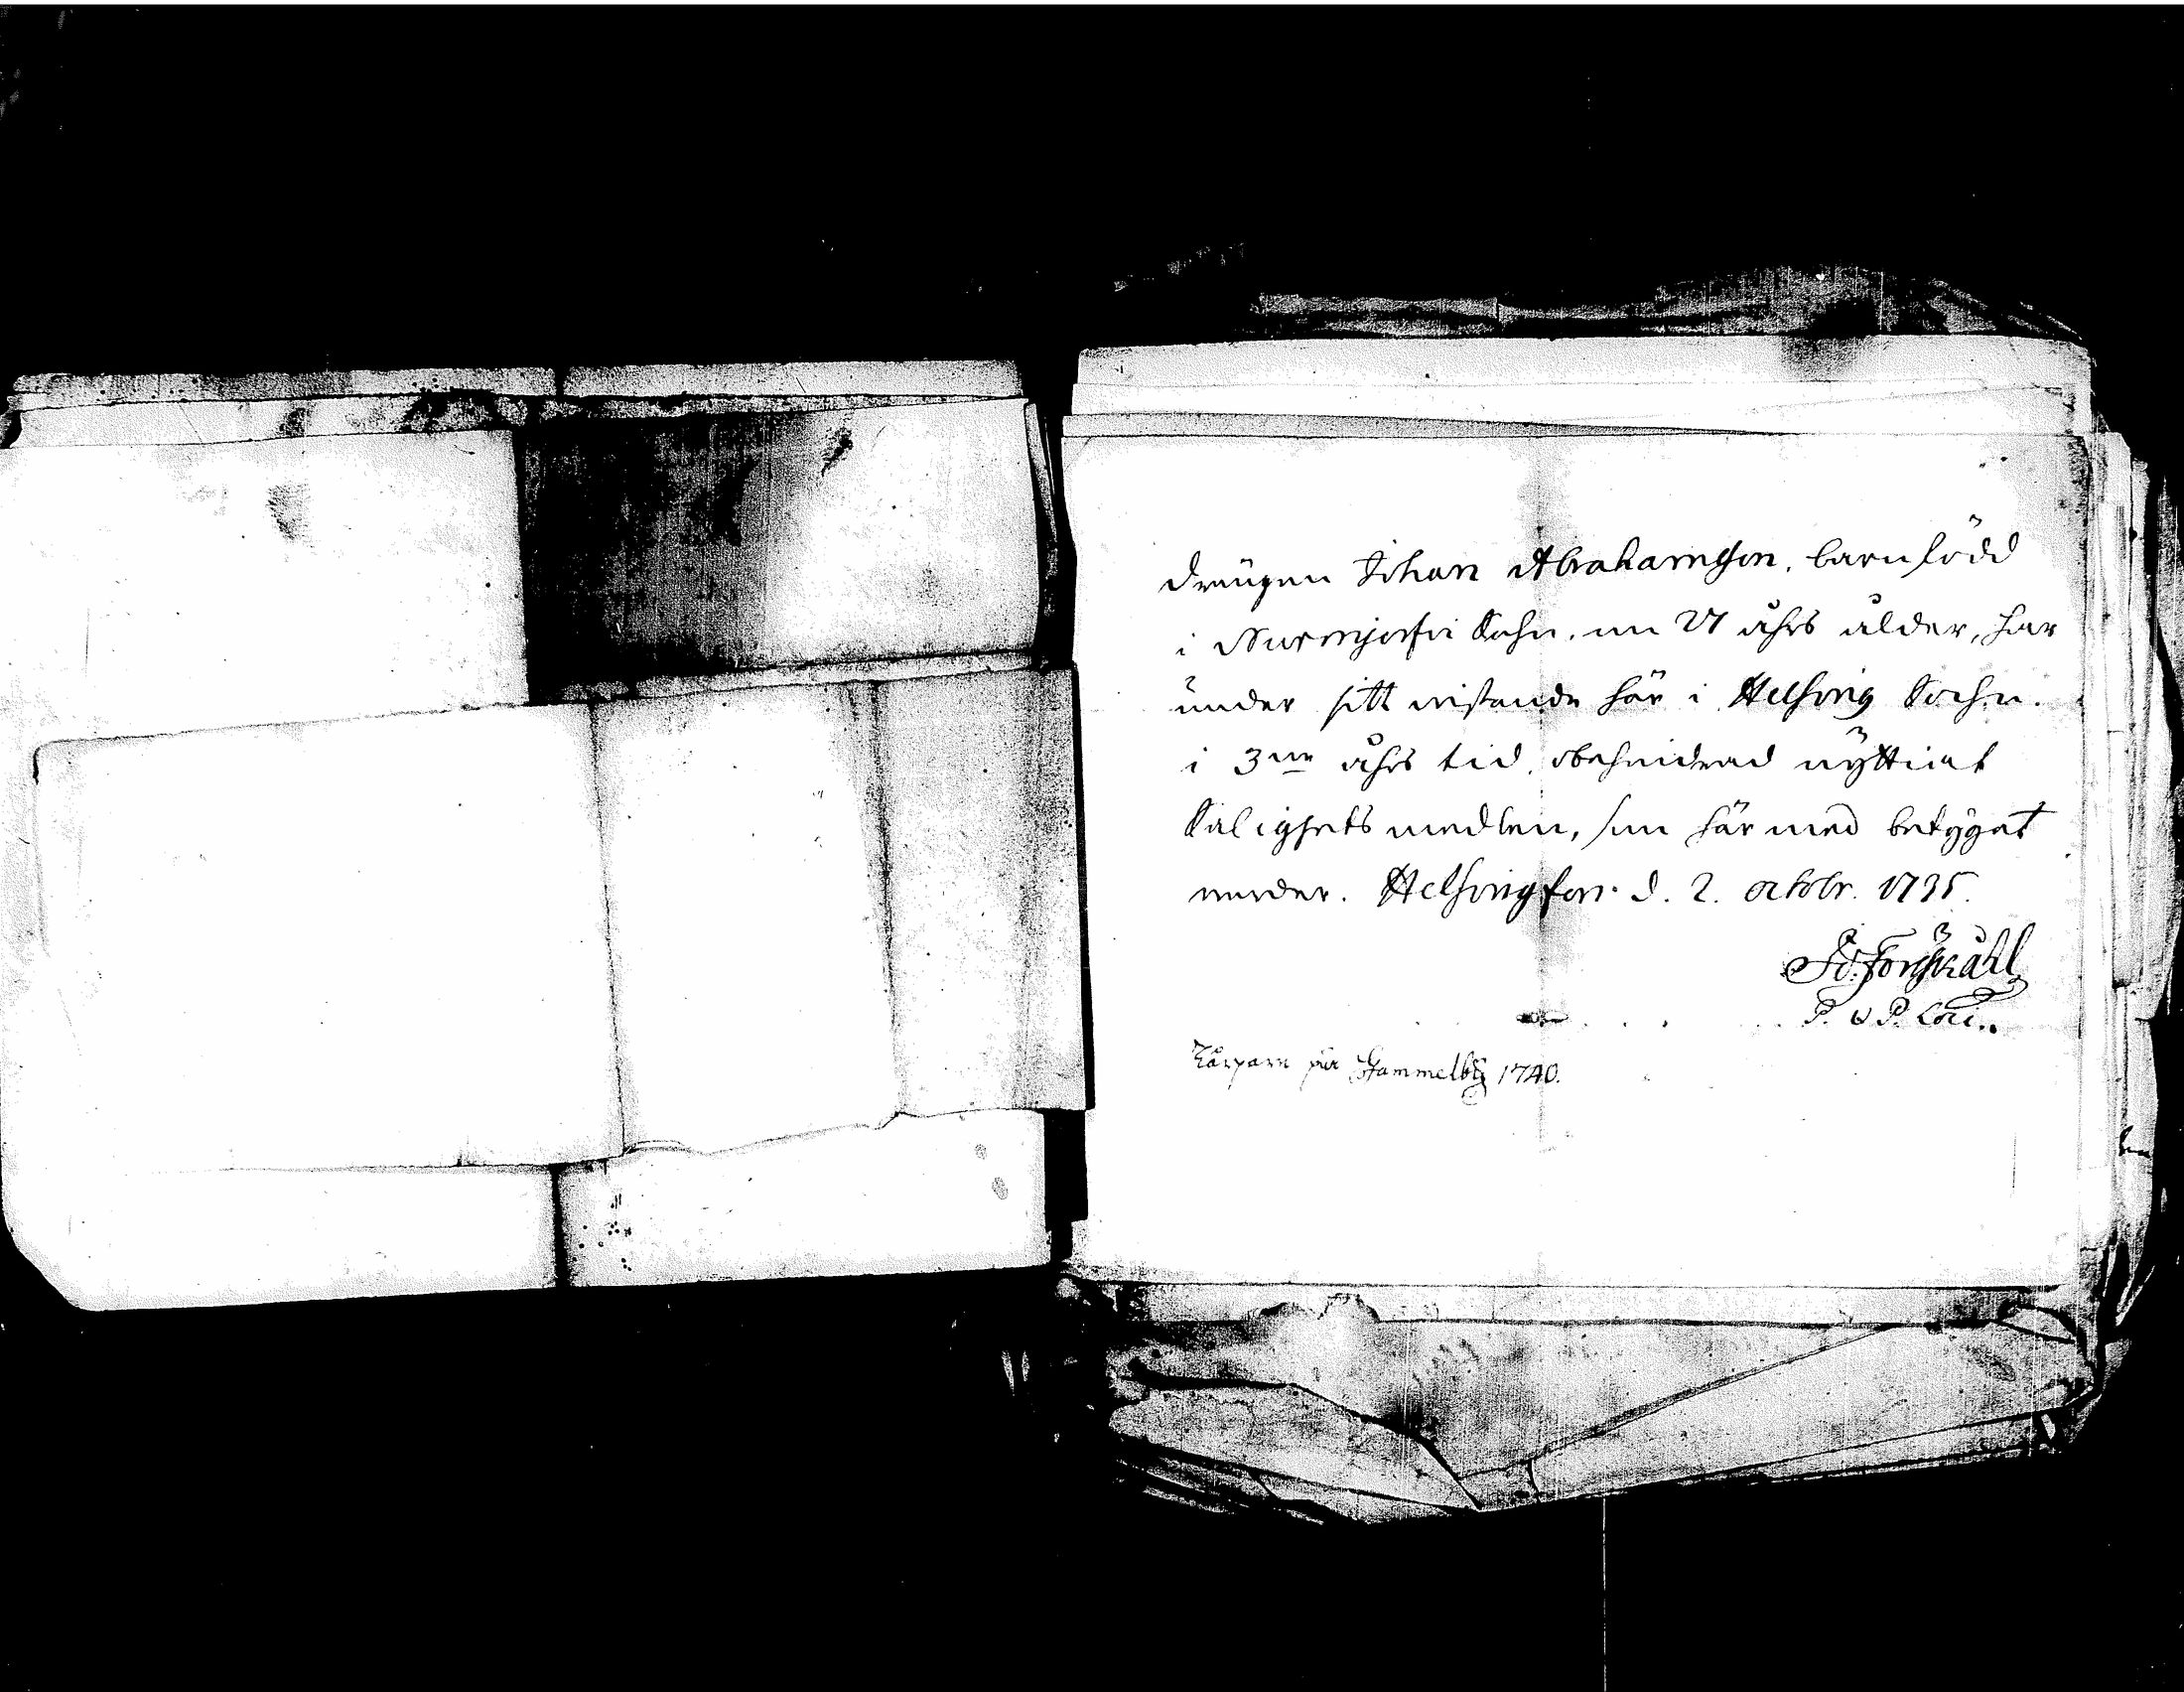 Drängen Johan Abrahamsson, barnfödd
i Nurmijerfvi Sokn, en 27 åhrs ålder, har
under sitt vistande här i Helsing Sochn.
i 3ne åhrs tid, obehindrad nyttiat
Salighets medlen, som här med betygat
warder. Helsingfors d. 2. octobr. 1735.
Jo: Forsskåhl
P. & P. Loci.
Torpare på Gammelby 1740.